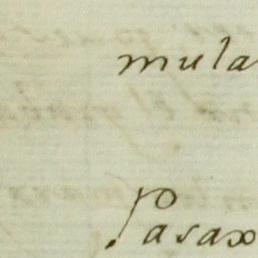 mula
Pasax